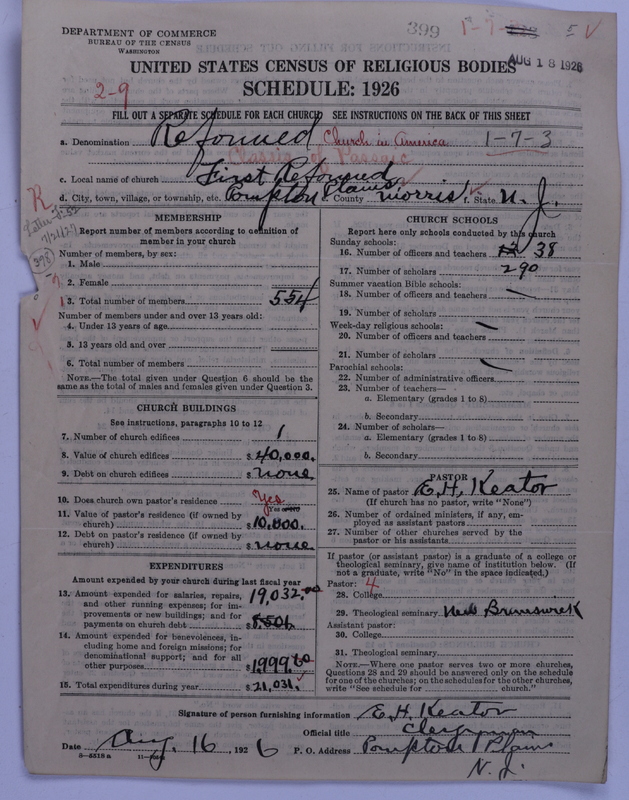 DEPARTMENT OF COMMERCE
BUREAU OF THE CENSUS
WASHINGTON
399
1-7-
AUG 18 1926
UNITED STATES CENSUS OF RELIGIOUS BODIES
SCHEDULE: 1926
2-9
FILL OUT A SEPARATE SCHEDULE FOR EACH CHURCH SEE INSTRUCTIONS ON THE BACK OF THIS SHEET
a. Denomination Reformed Church in America 1-7-3
Classis of Passaic
c. Local name of church First Reformed
d. City, town, village, or township, etc. Pompton Plains e. County Morris f. State N. J.
R
398
MEMBERSHIP
Report number of members according to definition of
member in your church
Number of members, by sex:
1. Male
2. Female
3. Total number of members 554
Number of members under and over 13 years old:
4. Under 13 years of age
5. 13 years old and over
6. Total number of members
NOTE.—The total given under Question 6 should be the
same as the total of males and females given under Question 3.
CHURCH BUILDINGS
See instructions, paragraphs 10 to 12
7. Number of church edifices 1
8. Value of church edifices $40,000.
9. Debt on church edifices $none
10. Does church own pastor's residence Yes
11. Value of pastor's residence (if owned by
church) $10,000.
12. Debt on pastor's residence (if owned by
church) $none
EXPENDITURES
Amount expended by your church during last fiscal year
13. Amount expended for salaries, repairs,
and other running expenses; for im-
provements or new buildings; and for
payments on church debt 19,032.00
14. Amount expended for benevolences, in-
cluding home and foreign missions; for
denominational support; and for all
other purposes $1999.60
15. Total expenditures during year $21,031.
CHURCH SCHOOLS
Report here only schools conducted by this church
Sunday schools:
16. Number of officers and teachers 38
17. Number of scholars 290
Summer vacation Bible schools:
18. Number of officers and teachers
19. Number of scholars
Week-day religious schools:
20. Number of officers and teachers
21. Number of scholars
Parochial schools:
22. Number of administrative officers
23. Number of teachers—
a. Elementary (grades 1 to 8)
b. Secondary
24. Number of scholars—
a. Elementary (grades 1 to 8)
b. Secondary
PASTOR
25. Name of pastor E. H. Keator
(If church has no pastor, write "None")
26. Number of ordained ministers, if any, em-
ployed as assistant pastors
27. Number of other churches served by the
pastor or his assistants
If pastor (or assistant pastor) is a graduate of a college or
theological seminary, give name of institution below. (If
not a graduate, write "No" in the space indicated.)
Pastor: 4
28. College
29. Theological seminary New Brunswick
Assistant pastor:
30. College
31. Theological seminary
NOTE.—Where one pastor serves two or more churches,
Questions 28 and 29 should be answered only on the schedule
for one of the churches; on the schedules for the other churches,
write "See schedule for church."
Signature of person furnishing information E. H. Keator
Official title Clergyman
Date Aug. 16, 1926 P. O. Address Pompton Plains
N. J.
8—5518 a